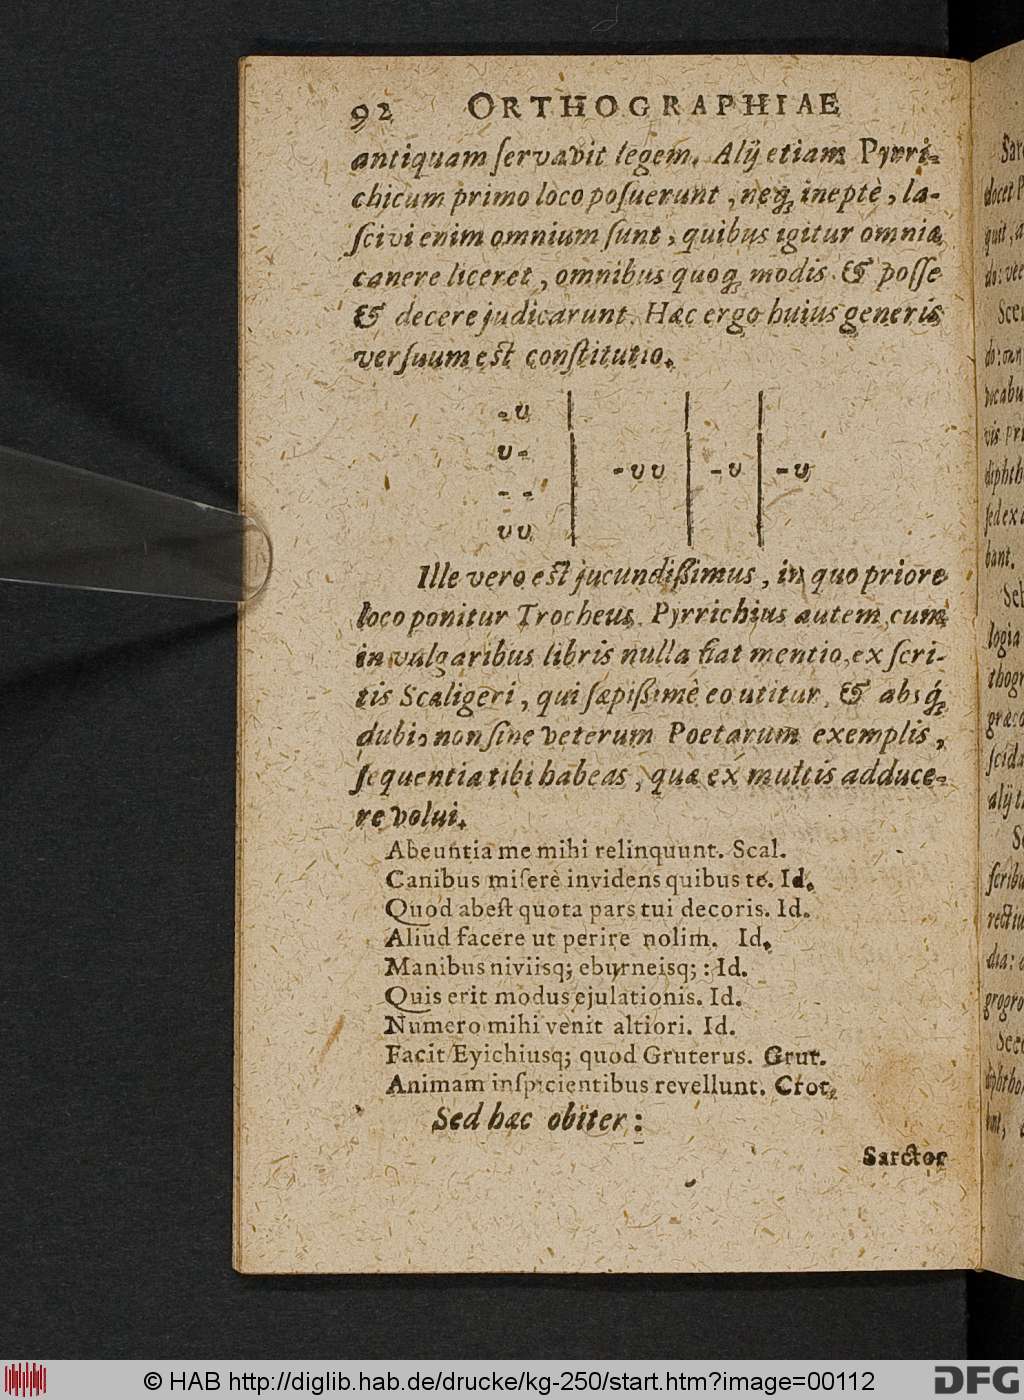 92 ORTHOGRAPHIAE
antiquam ſervavit legem. Alij etiam Pyrri-
chicum primo loco poſuerunt, neq; ineptè, la-
ſcivi enim omnium ſunt, quibus igitur omnia
canere liceret, omnibus quoq; modis & poſſe
& decere judicarunt. Hæc ergo huius generis
verſuum est conſtitutio.
-υ
υ- | -υυ | -υ | -υ
- -
υυ
Ille vero est jucundißimus, in quo priore
loco ponitur Trocheus. Pyrrichius autem cum
in vulgaribus libris nulla fiat mentio, ex ſcri-
tis Scaligeri, qui ſæpißimè eo utitur, & absq́;
dubio non ſine veterum Poetarum exemplis,
ſequentia tibi habeas, quæ ex multis adduce-
re volui.
Abeuntia me mihi relinquunt. Scal.
Canibus miſerè invidens quibus te. Id.
Quod abeſt quota pars tui decoris. Id.
Aliud facere ut perire nolim. Id.
Manibus niviisq; eburneisq; : Id.
Quis erit modus ejulationis. Id.
Numero mihi venit altiori. Id.
Facit Eyichiusq; quod Gruterus. Grut.
Animam inſpicientibus revellunt. Crot.
Sed hæc obiter:
Sarctor
© HAB http://diglib.hab.de/drucke/kg-250/start.htm?image=00112
DFG